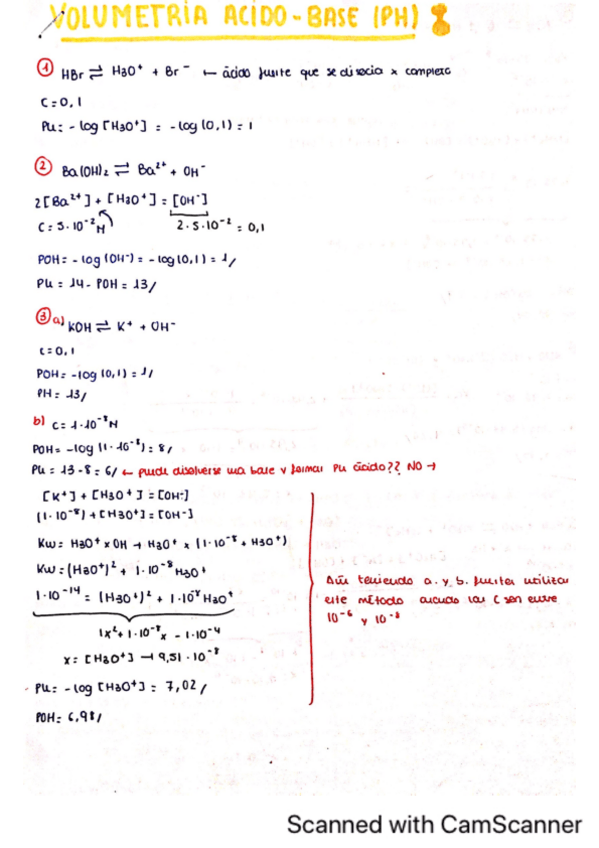 VOLUMETRÍA ACIDO-BASE (PH)
① HBr ⇌ H3O⁺ + Br⁻ ← ácido fuerte que se disocia x completo
C=0,1
PH: -log [H3O⁺] = -log (0,1) = 1
② Ba(OH)₂ ⇌ Ba²⁺ + OH⁻
2[Ba²⁺] + [H3O⁺] = [OH⁻]
C = 5·10⁻² M 2·5·10⁻² = 0,1
POH = -log (OH⁻) = -log (0,1) = 1/
PH = 14 - POH = 13/
③ a) KOH ⇌ K⁺ + OH⁻
C=0,1
POH= -log (0,1) = 1/
PH= 13/
b) C= 1·10⁻⁸ N
POH= -log (1·10⁻⁸) = 8/
PH = 13-8 = 6/ ← puede disolverse una base y formar PH ácido?? NO →
[K⁺] + [H3O⁺] = [OH-]
(1·10⁻⁸) + [H3O⁺] = [OH-]
KW= H3O⁺ x OH → H3O⁺ x (1·10⁻⁸ + H3O⁺)
KW= (H3O⁺)² + 1·10⁻⁸ H3O⁺
1·10⁻¹⁴ = (H3O⁺)² + 1·10⁸ H3O⁺
1x² + 1·10⁻⁸x - 1·10⁻⁴
x = [H3O⁺] → 9,51·10⁻⁸
PH= -log [H3O⁺] = 7,02/
POH= 6,98/
Aún teniendo a. y b. fuertes utilizar
este método cuando las C sen entre
10⁻⁶ y 10⁻⁸
Scanned with CamScanner